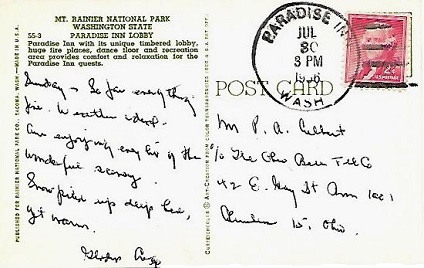 MT. RAINIER NATIONAL PARK
WASHINGTON STATE
55-3 PARADISE INN LOBBY
Paradise Inn with its unique timbered lobby,
huge fire places, dance floor and recreation
area provides comfort and relaxation for the
Paradise Inn guests.
PARADISE INN
JUL
30
3 PM
1956
WASH
2¢
POST CARD
Sunday - So far every thing
fine. Weather ideal.
Am enjoying every bit of the
wonderful scenery.
Snow piled up deep here,
yet warm.
Gladys
Mr P. A.
c/o The Ohio Bell Tel Co
42 E. Gay St Rm 1001
Columbus 15, Ohio.
PUBLISHED FOR RAINIER NATIONAL PARK CO., TACOMA, WASH.—MADE IN U.S.A.